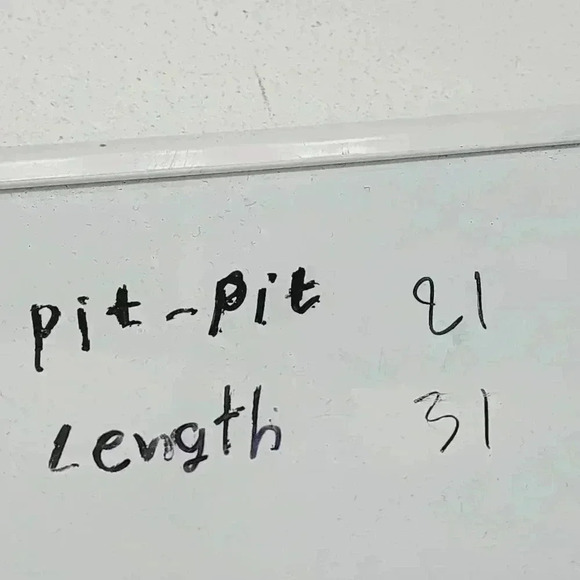 pit-pit 21
Length 31